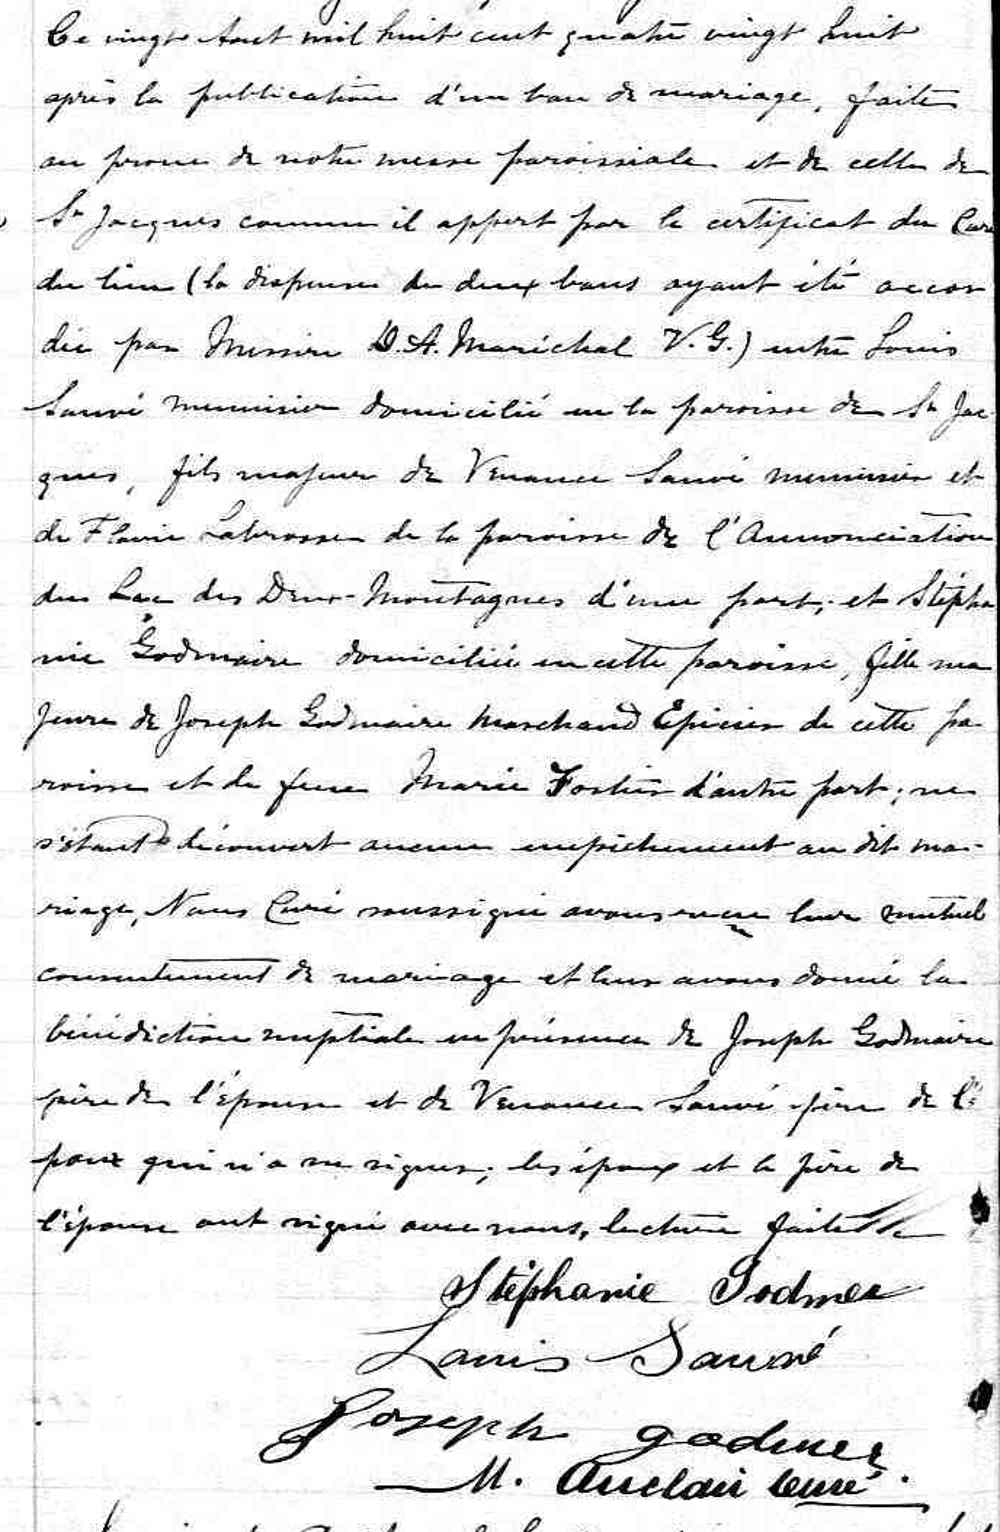 Ce vingt Aout mil huit cent quatre vingt huit
après la publication d'un ban de mariage, faite
au prone de notre messe paroissiale et de celle de
St Jacques comme il appert par le certificat du Curé
du lieu (la dispense de deux bans ayant été accor
dée par Messire D.A. Maréchal V.G.) entre Louis
Sauvé menuisier domicilié en la paroisse de St Jac
ques, fils majeur de Venance Sauvé menuisier et
de Flavie Labrosse de la paroisse de l'Annonciation
du Lac des Deux-Montagnes d'une part; et Stépha
nie Godmaire domiciliée en cette paroisse, fille ma
jeure de Joseph Godmaire Marchand Epicier de cette pa
roisse et de feue Marie Fortier d'autre part; ne
s'étant découvert aucun empêchement au dit ma-
riage, Nous Curé soussigné avons reçu leur mutuel
consentement de mariage et leur avons donné la
bénédiction nuptiale en présence de Joseph Godmaire
père de l'épouse et de Venance Sauvé père de l'é
poux qui n'a su signer; les époux et le père de
l'épouse ont signé avec nous, lecture faite
Stéphanie Godmer
Louis Sauvé
Joseph godmer
M. Auclair Curé.